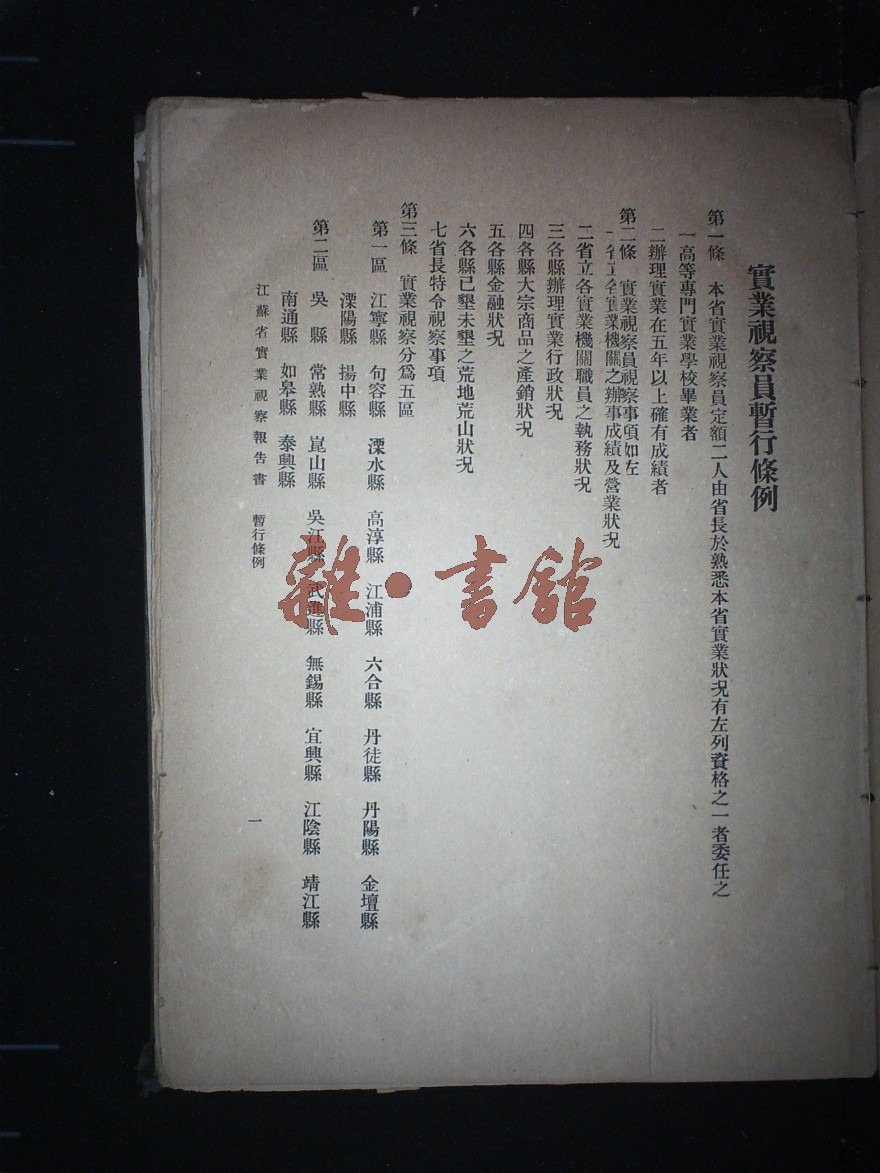 實業視察員暫行條例
第一條　本省實業視察員定額二人由省長於熟悉本省實業狀況有左列資格之一者委任之
一高等專門實業學校畢業者
二辦理實業在五年以上確有成績者
第二條　實業視察員視察事項如左
一省立各實業機關之辦事成績及營業狀況
二省立各實業機關職員之執務狀況
三各縣辦理實業行政狀況
四各縣大宗商品之產銷狀況
五各縣金融狀況
六各縣已墾未墾之荒地荒山狀況
七省長特令視察事項
第三條　實業視察分爲五區
第一區　江寧縣　句容縣　溧水縣　高淳縣　江浦縣　六合縣　丹徒縣　丹陽縣　金壇縣
溧陽縣　揚中縣
第二區　吳　縣　常熟縣　崑山縣　吳江縣　武進縣　無錫縣　宜興縣　江陰縣　靖江縣
南通縣　如皋縣　泰興縣
江蘇省實業視察報告書　暫行條例
一
雜·書館